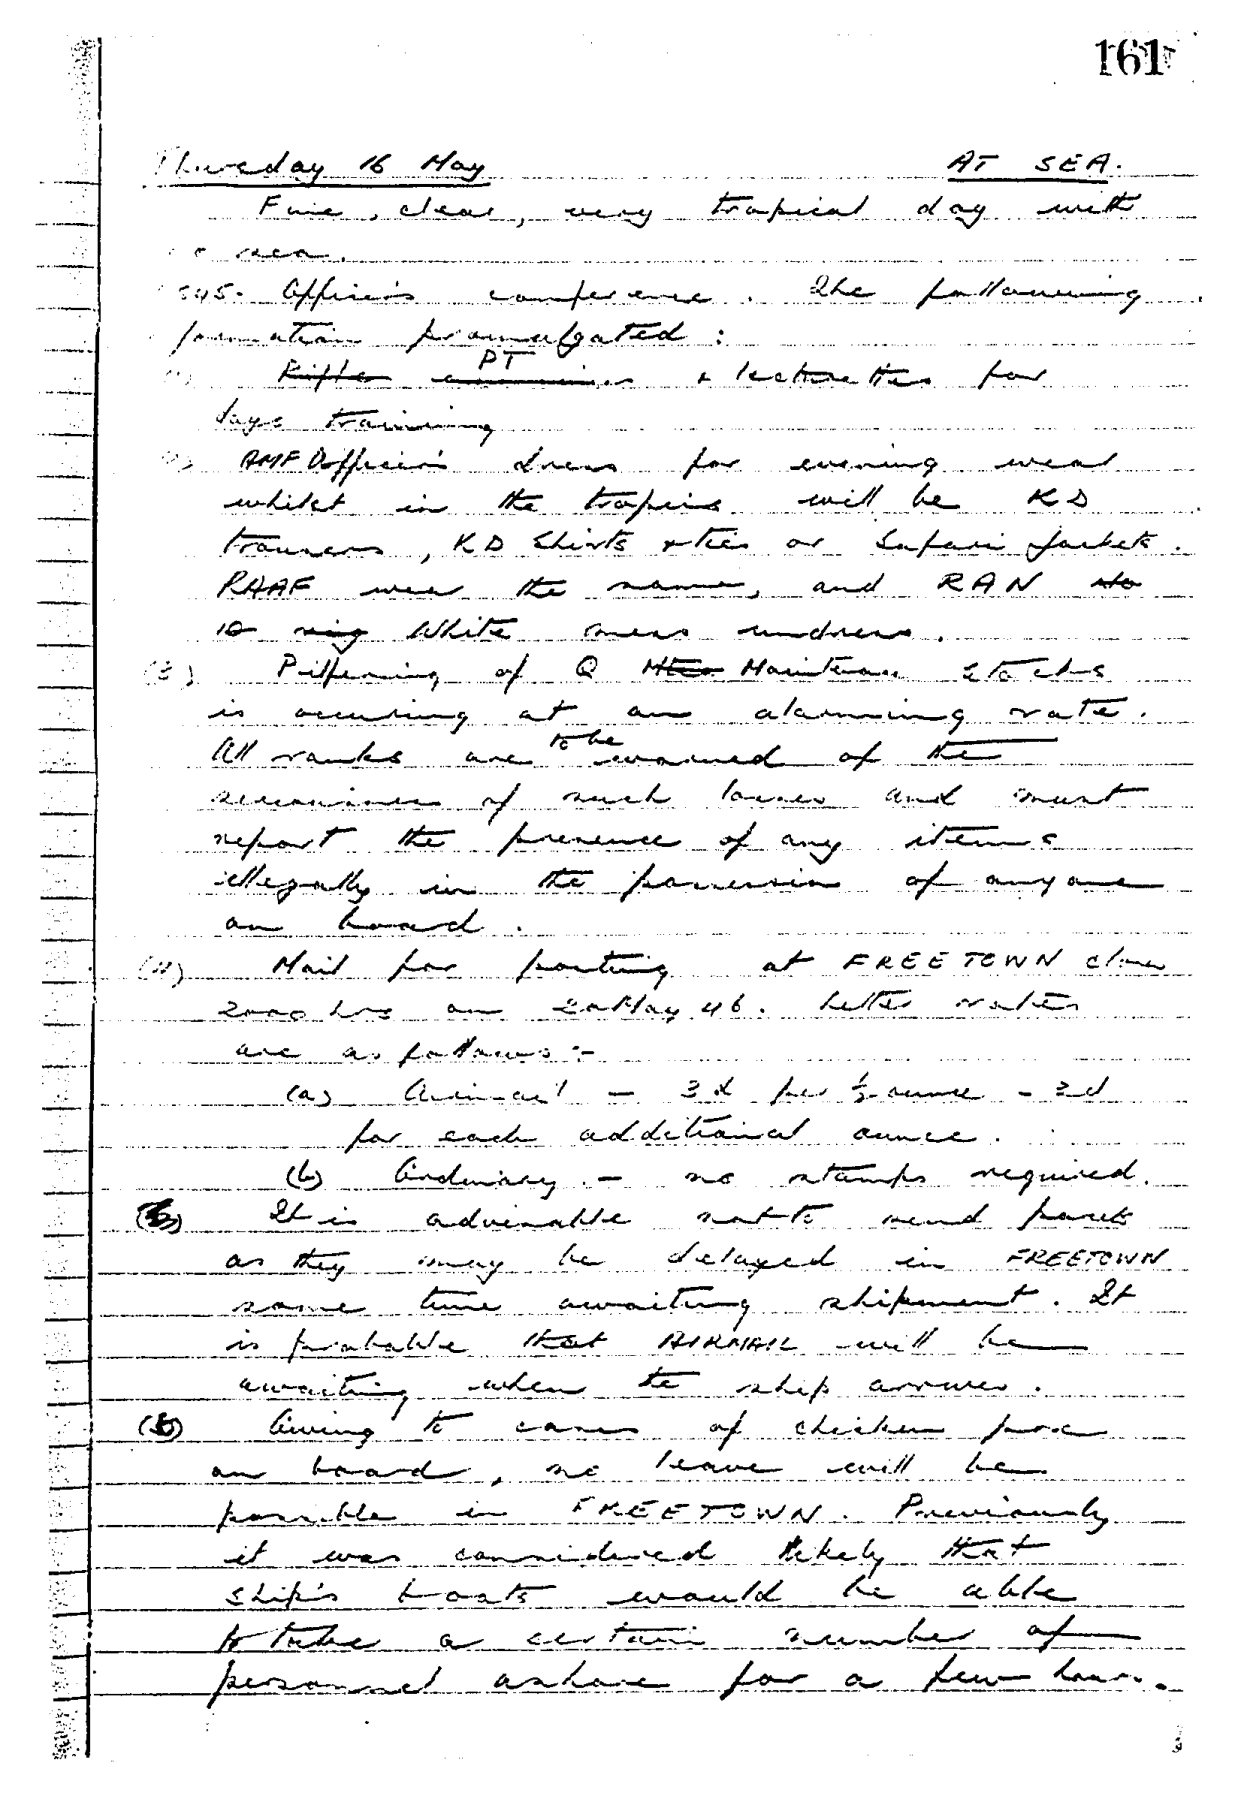 161
Thursday 16 May AT SEA.
Fine, clear, very tropical day with
sea.
Officers conference. The following
formation promulgated:
PT
Rifle exercises & lecturettes for
days training
AMF Officers dress for evening wear
whilst in the tropics will be KD
trousers, KD Shirts & ties or Safari Jackets.
RAAF wear the same, and RAN
10 rig White mess undress.
(3) Pilfering of Q Stocks
is occuring at an alarming rate.
to be
All ranks are warned of the
seriousness of such losses and must
report the presence of any items
illegally in the possession of anyone
on board.
(4) Mail for posting at FREETOWN close
2000 hrs on May 46. Letter rates
are as follows:-
(a) Airmail - 3d per ½ ounce - 3d
for each additional ounce.
(b) Ordinary - no stamps required.
It is advisable not to send parcels
as they may be delayed in FREETOWN
some time awaiting shipment. It
is probable that AIRMAIL will be
awaiting when the ship arrives.
Owing to cases of chicken pox
on board, no leave will be
possible in FREETOWN. Previously
it was considered likely that
ship's boats would be able
to take a certain number of
personnel ashore for a few hours.